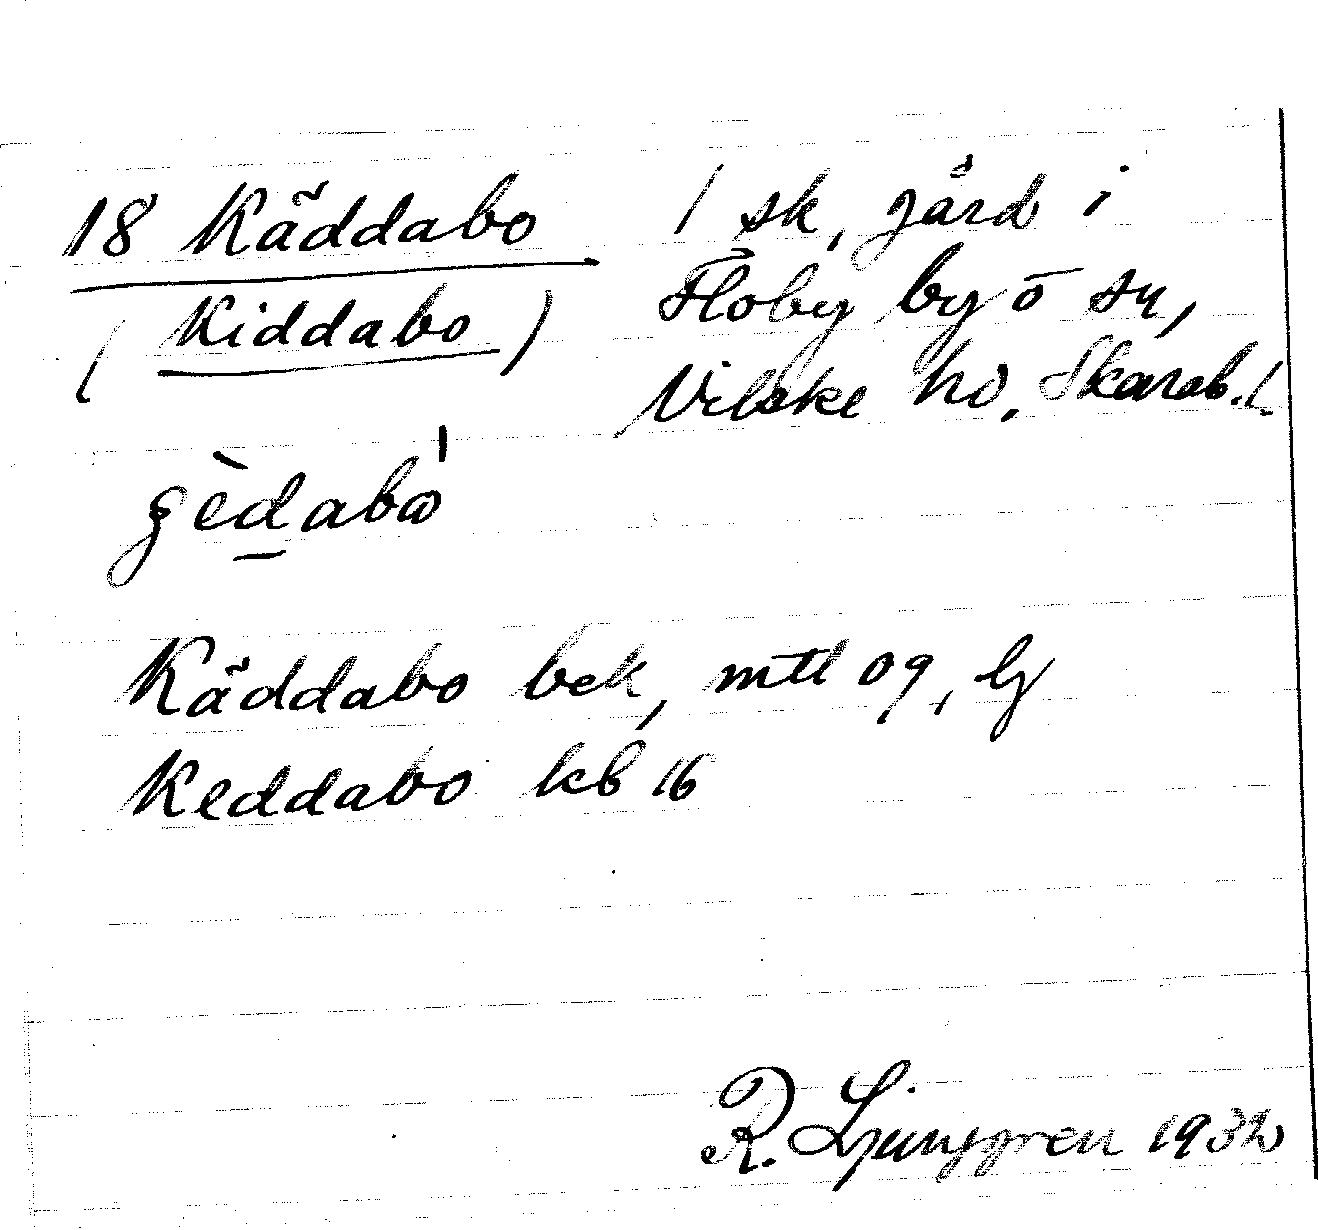 18 Käddabo
(Kiddabo)
1 sk, gård i
Floby by o sn,
Vilske hd. Skarab. l.
Käddabo bek, mtl 09, lj
Keddabo kb 16
R. Ljunggren 1932